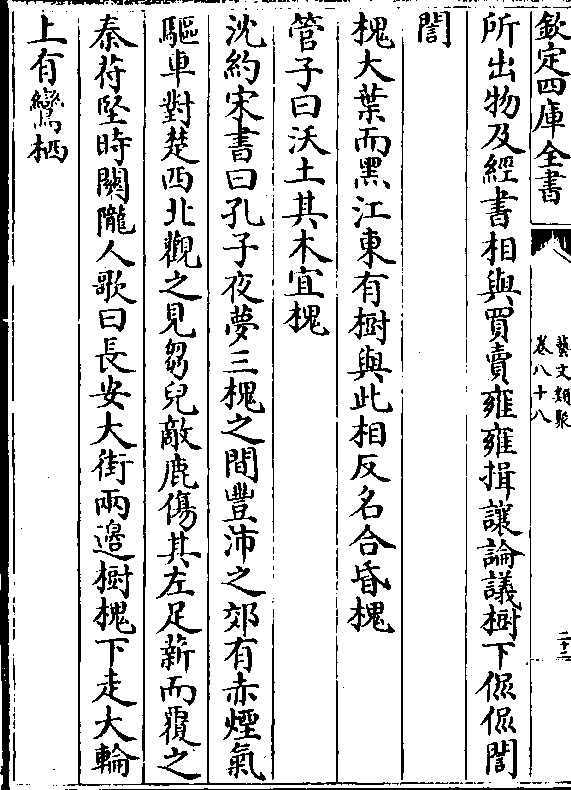 欽定四庫全書
藝文類聚
卷八十八
二十二
所出物及經書相與買賣雍雍揖讓論議樹下侃侃誾
誾
槐大葉而黑江東有樹與此相反名合昏槐
管子曰沃土其木宜槐
沈約宋書曰孔子夜夢三槐之間豐沛之郊有赤煙氣
驅車對楚西北觀之見芻兒敵鹿傷其左足薪而覆之
秦苻堅時關隴人歌曰長安大街兩邉樹槐下走大輪
上有鸞栖